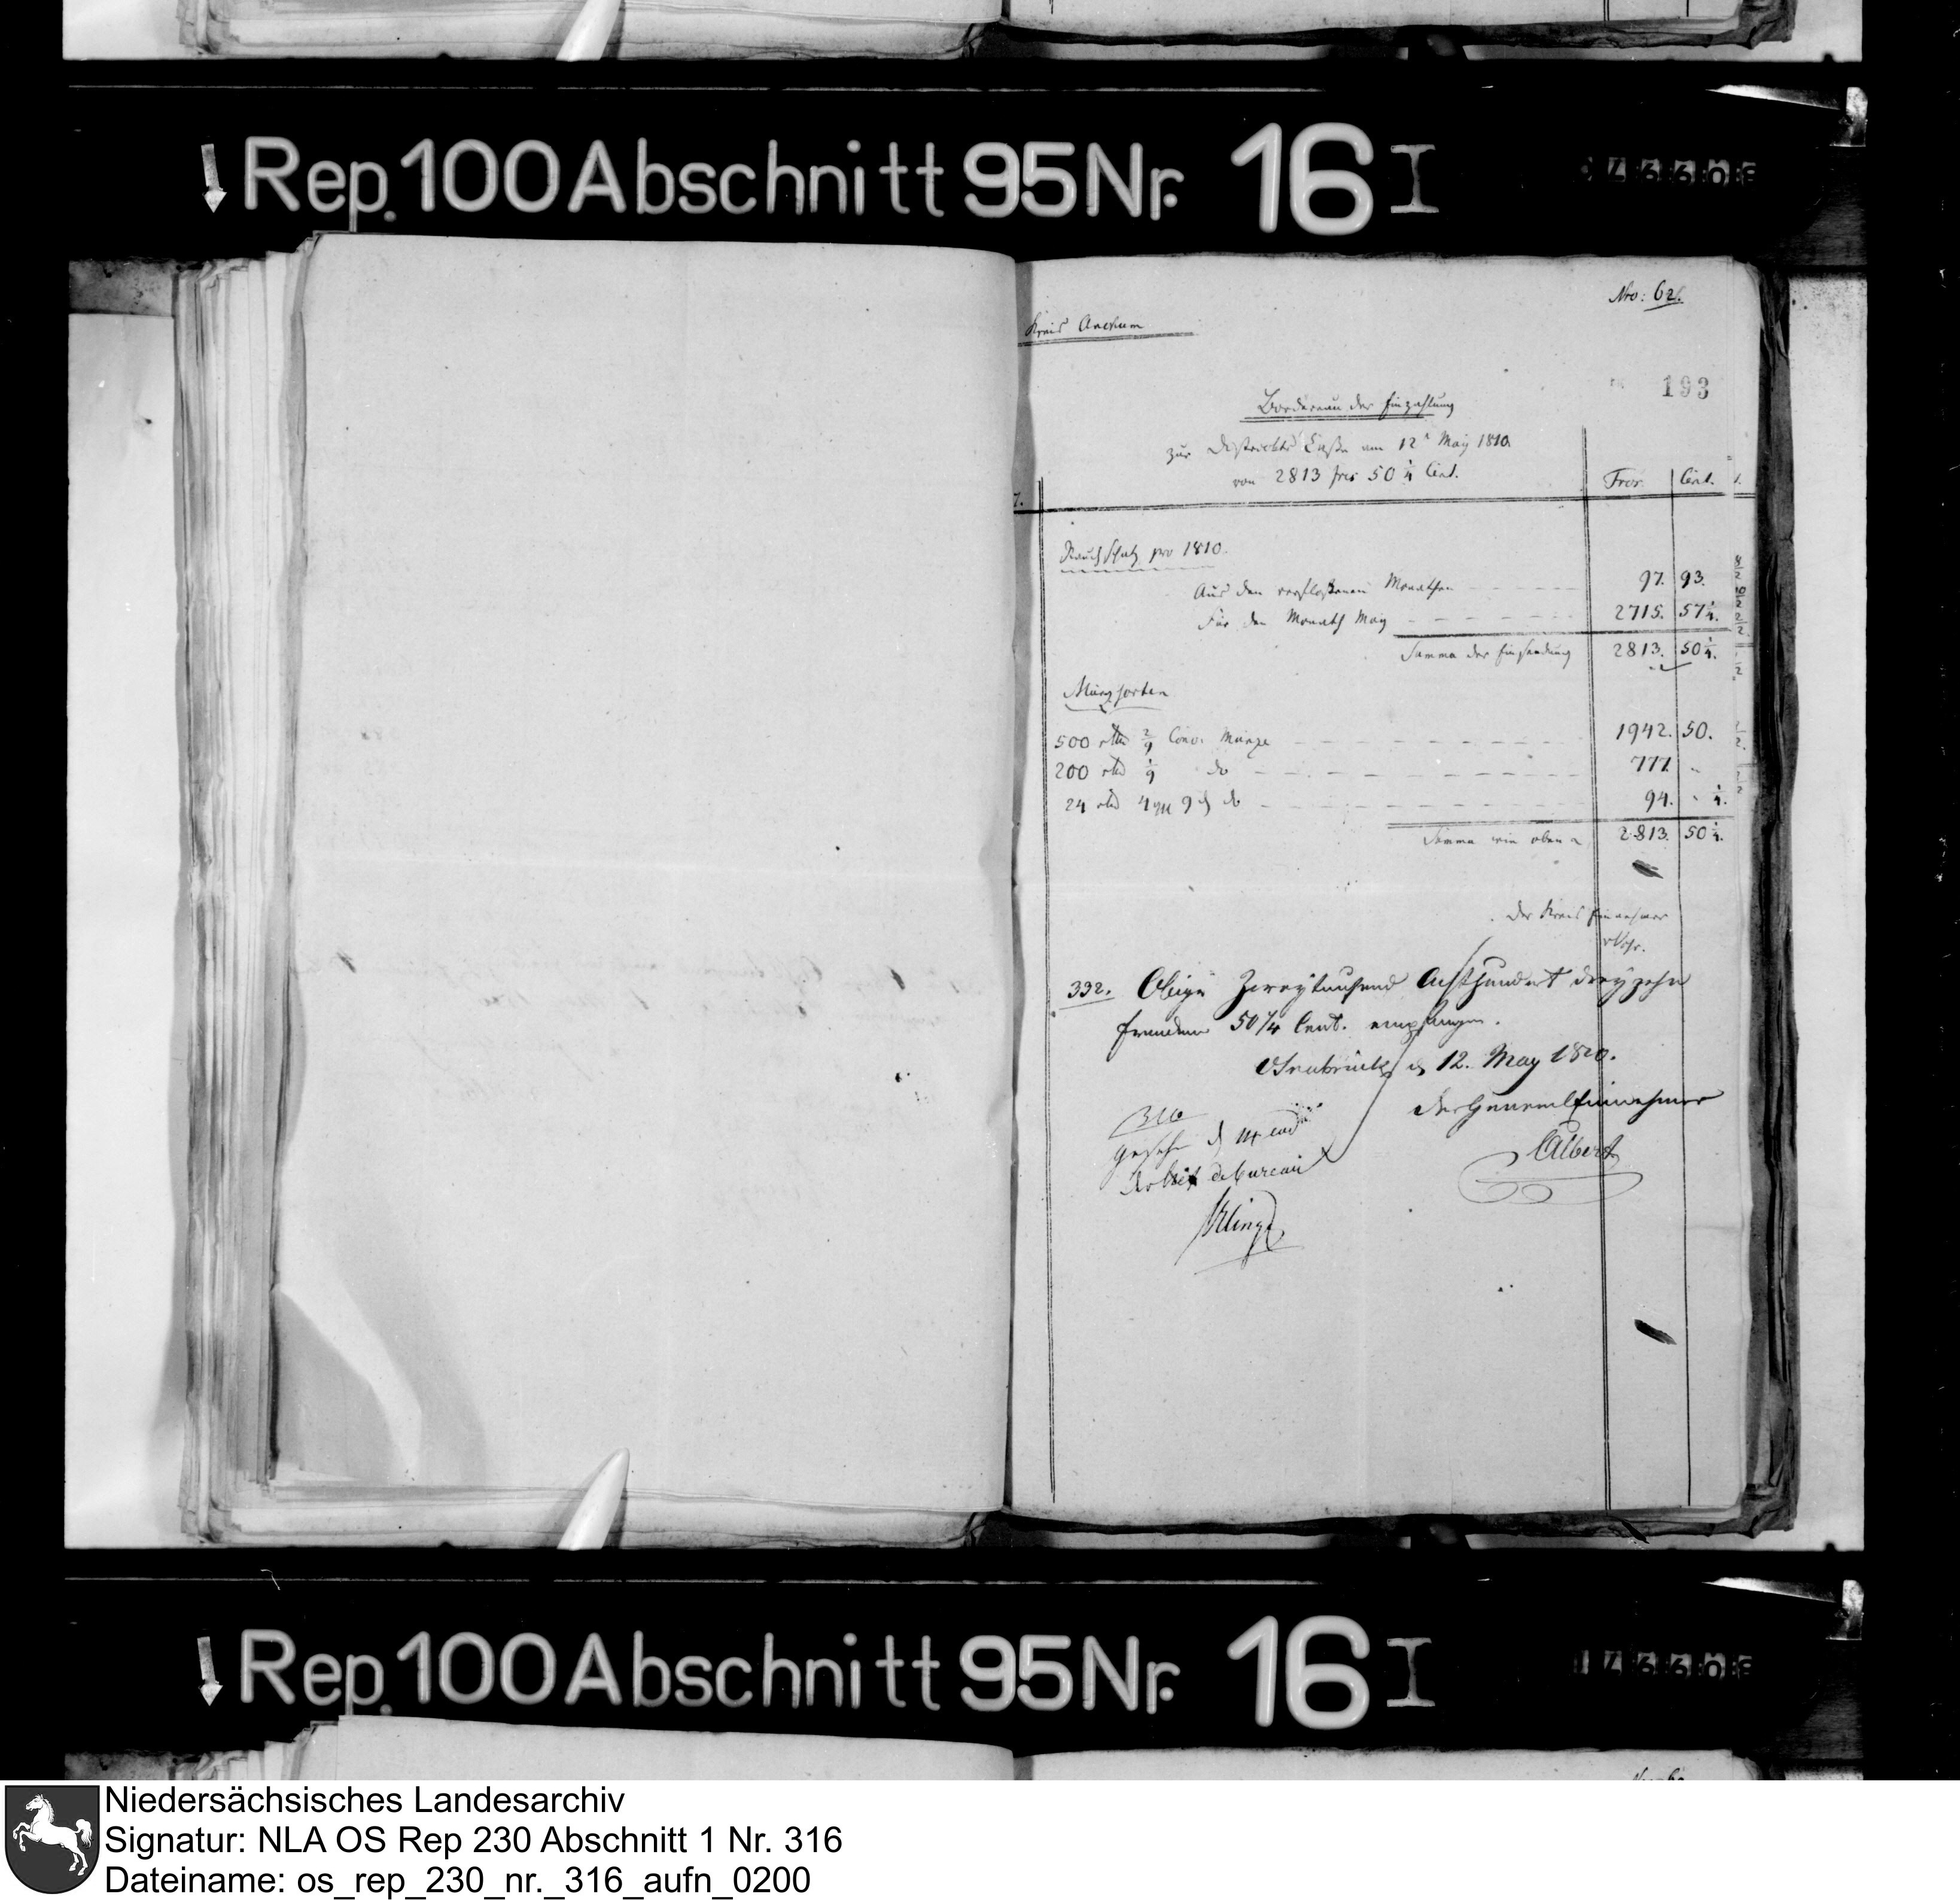 Rep. 100 Abschnitt 95 Nr. 16 I
Nro: 62.
Kreis Anckum
193
Bordereau der Einzahlung
zur Districkts Casse am 12t May 1810
von 2813 frcs 50 1/4 Cent.
Frcs. Cent.
Rauchschatz pro 1810.
Aus den verflossenen Monathen 97. 93.
Für den Monath May 2715. 57 1/4.
Summa der Einsendung 2813. 50 1/4.
Münzsorten
500 rthl 2/9 Conv. Münze 1942. 50.
200 rthl 1/9 do 777. -
24 rthl 4 ggr 9 d do 94. - 1/4.
Summa wie oben 2813. 50 1/4.
Der Kreis Einnehmer
332. Obige Zweytausend Achthundert dreyzehn
Franken 50 1/4 Cent. empfangen.
Osnabrück d 12. May 1810.
Der General Einnehmer
Albert
316
gesehen d ut
de bureau
Klinge
Rep. 100 Abschnitt 95 Nr. 16 I
Niedersächsisches Landesarchiv
Signatur: NLA OS Rep 230 Abschnitt 1 Nr. 316
Dateiname: os_rep_230_nr._316_aufn_0200